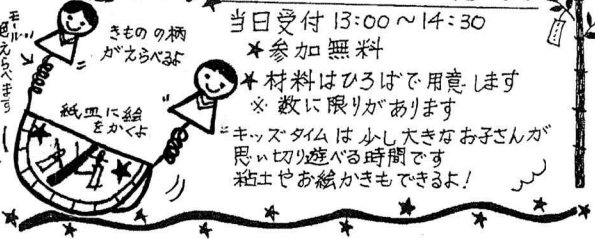 モール
色えらべます
きものの柄
がえらべるよ
紙皿に絵
をかくよ
当日受付 13:00～14:30
★参加無料
★材料はひろばで用意します
※数に限りがあります
キッズタイムは少し大きなお子さんが
思い切り遊べる時間です
粘土やお絵かきもできるよ!